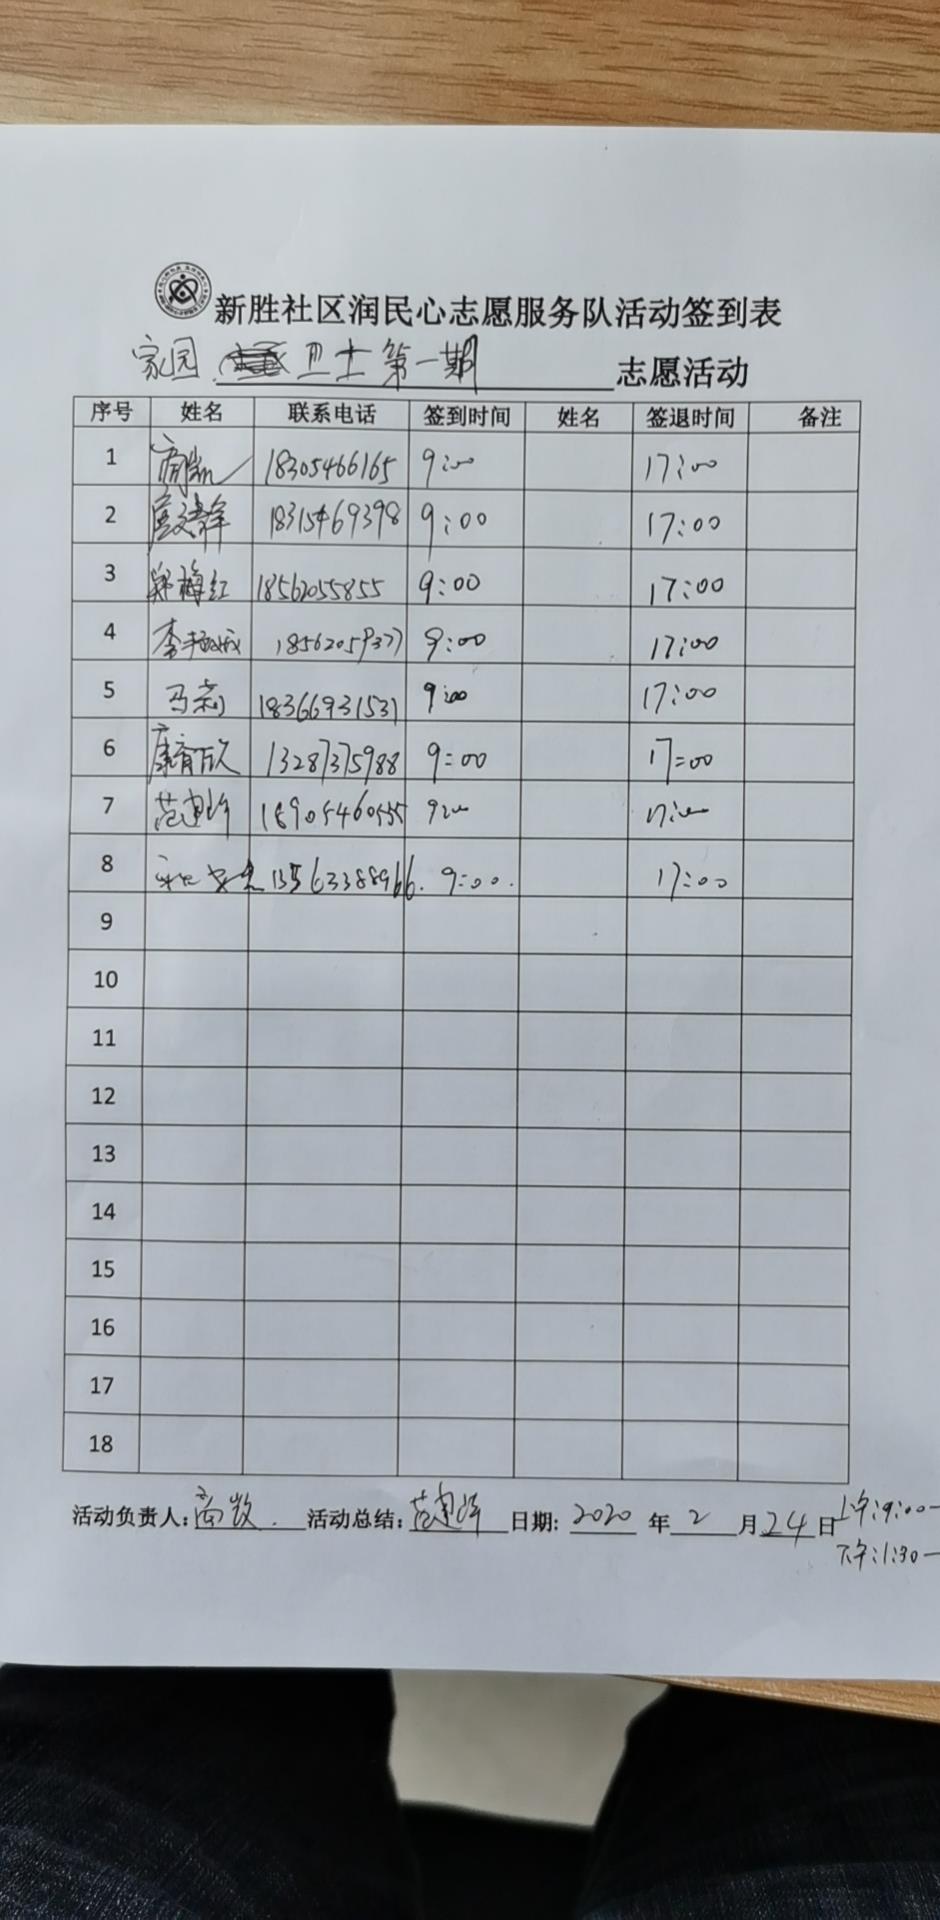 新胜社区润民心志愿服务队活动签到表
家园 卫士第一期 志愿活动
序号 姓名 联系电话 签到时间 姓名 签退时间 备注
1 18305466165 9:00 17:00
2 18315469398 9:00 17:00
3 郑梅红 18562055855 9:00 17:00
4 李 18562059377 9:00 17:00
5 马莉 18366931531 9:00 17:00
6 康育欣 13287375988 9:00 17:00
7 范建 18905460555 9:00 17:00
8 13563388966. 9:00. 17:00
9
10
11
12
13
14
15
16
17
18
活动负责人: 活动总结:范建 日期: 2020 年 2 月 24 日 上午:9:00-
下午:1:30-